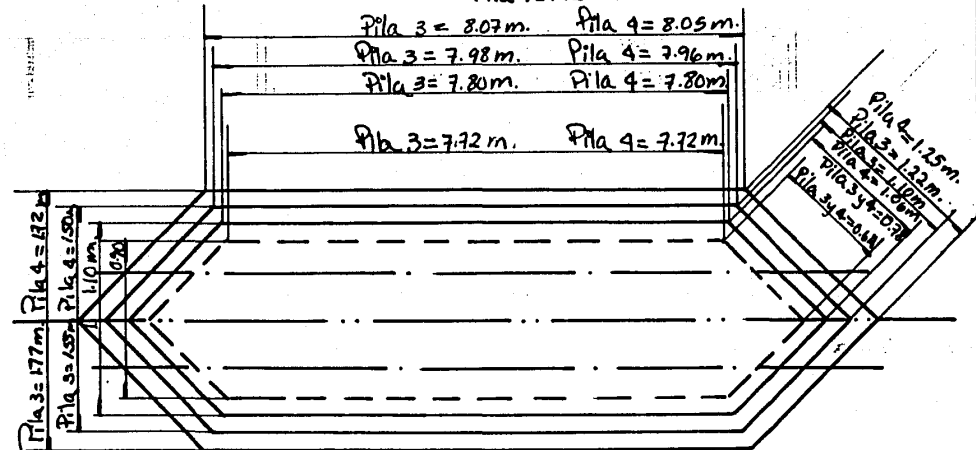 Pila 3 = 8.07 m. Pila 4 = 8.05 m
Pila 3 = 7.98 m. Pila 4 = 7.96 m.
Pila 3 = 7.80 m. Pila 4 = 7.80 m.
Pila 3 = 7.72 m. Pila 4 = 7.72 m.
Pila 4 = 1.25 m.
Pila 3 = 1.22 m.
Pila 3 = 1.10 m.
Pila 4 = 1.06 m.
Pila 3 y 4 = 0.78
Pila 3 y 4 = 0.64
Pila 3 = 1.77 m. Pila 4 = 1.72 m
Pila 3 = 1.55 m Pila 4 = 1.50 m
1.10 m.
0.90